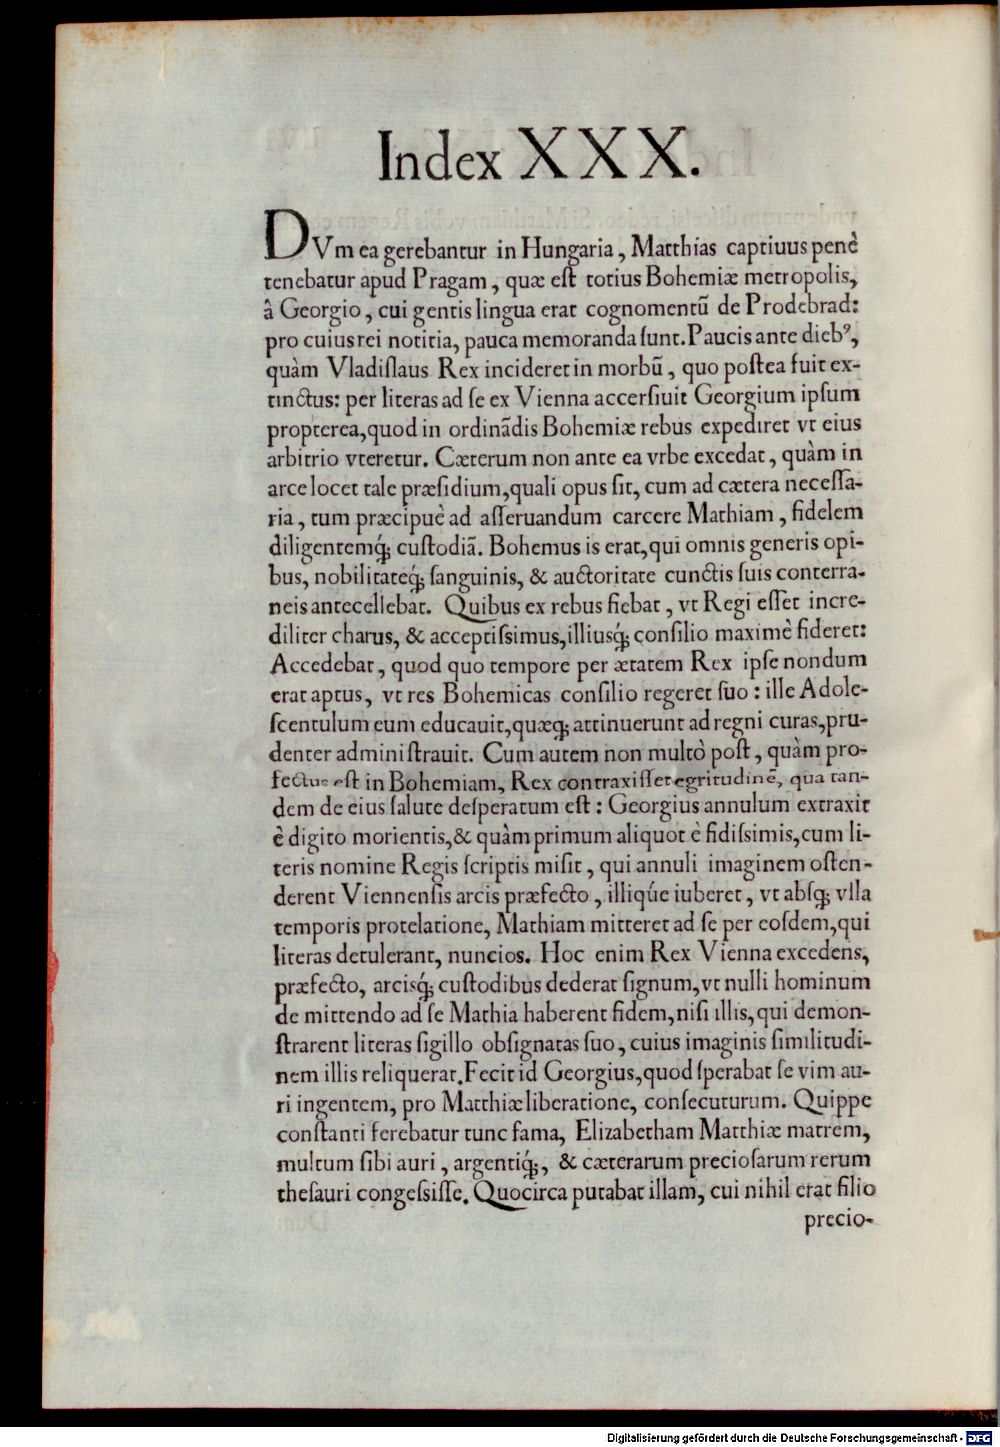 Index XXX.
DVm ea gerebantur in Hungaria, Matthias captiuus penè
tenebatur apud Pragam, quæ eſt totius Bohemiæ metropolis,
â Georgio, cui gentis lingua erat cognomentũ de Prodebrad:
pro cuius rei notitia, pauca memoranda ſunt. Paucis ante dieb⁹,
quàm Vladiſlaus Rex incideret in morbũ, quo poſtea fuit ex-
tinctus: per literas ad ſe ex Vienna accerſiuit Georgium ipſum
propterea, quod in ordinãdis Bohemiæ rebus expediret vt eius
arbitrio vteretur. Cæterum non ante ea vrbe excedat, quàm in
arce locet tale præſidium, quali opus ſit, cum ad cætera neceſſa-
ria, tum præcipuè ad aſſeruandum carcere Mathiam, fidelem
diligentemq́; cuſtodiã. Bohemus is erat, qui omnis generis opi-
bus, nobilitateq́; ſanguinis, & auctoritate cunctis ſuis conterra-
neis antecellebat. Quibus ex rebus fiebat, vt Regi eſſet incre-
diliter charus, & acceptiſsimus, illiusq́; conſilio maximè fideret:
Accedebat, quod quo tempore per ætatem Rex ipſe nondum
erat aptus, vt res Bohemicas conſilio regeret ſuo: ille Adole-
ſcentulum eum educauit, quæq́; attinuerunt ad regni curas, pru-
denter adminiſtrauit. Cum autem non multò poſt, quàm pro-
fectus eſt in Bohemiam, Rex contraxiſſet egritudinẽ, qua tan-
dem de eius ſalute deſperatum eſt: Georgius annulum extraxit
è digito morientis, & quàm primum aliquot è fidiſsimis, cum li-
teris nomine Regis ſcriptis miſit, qui annuli imaginem oſten-
derent Viennenſis arcis præfecto, illiqúe iuberet, vt abſq́; vlla
temporis protelatione, Mathiam mitteret ad ſe per eoſdem, qui
literas detulerant, nuncios. Hoc enim Rex Vienna excedens,
præfecto, arcisq́; cuſtodibus dederat ſignum, vt nulli hominum
de mittendo ad ſe Mathia haberent fidem, niſi illis, qui demon-
ſtrarent literas ſigillo obſignatas ſuo, cuius imaginis ſimilitudi-
nem illis reliquerat. Fecit id Georgius, quod ſperabat ſe vim au-
ri ingentem, pro Matthiæ liberatione, conſecuturum. Quippe
conſtanti ferebatur tunc fama, Elizabetham Matthiæ matrem,
multum ſibi auri, argentiq́;, & cæterarum precioſarum rerum
theſauri congeſsiſſe. Quocirca putabat illam, cui nihil erat filio
precio-
Digitalisierung gefördert durch die Deutsche Forschungsgemeinschaft - DFG